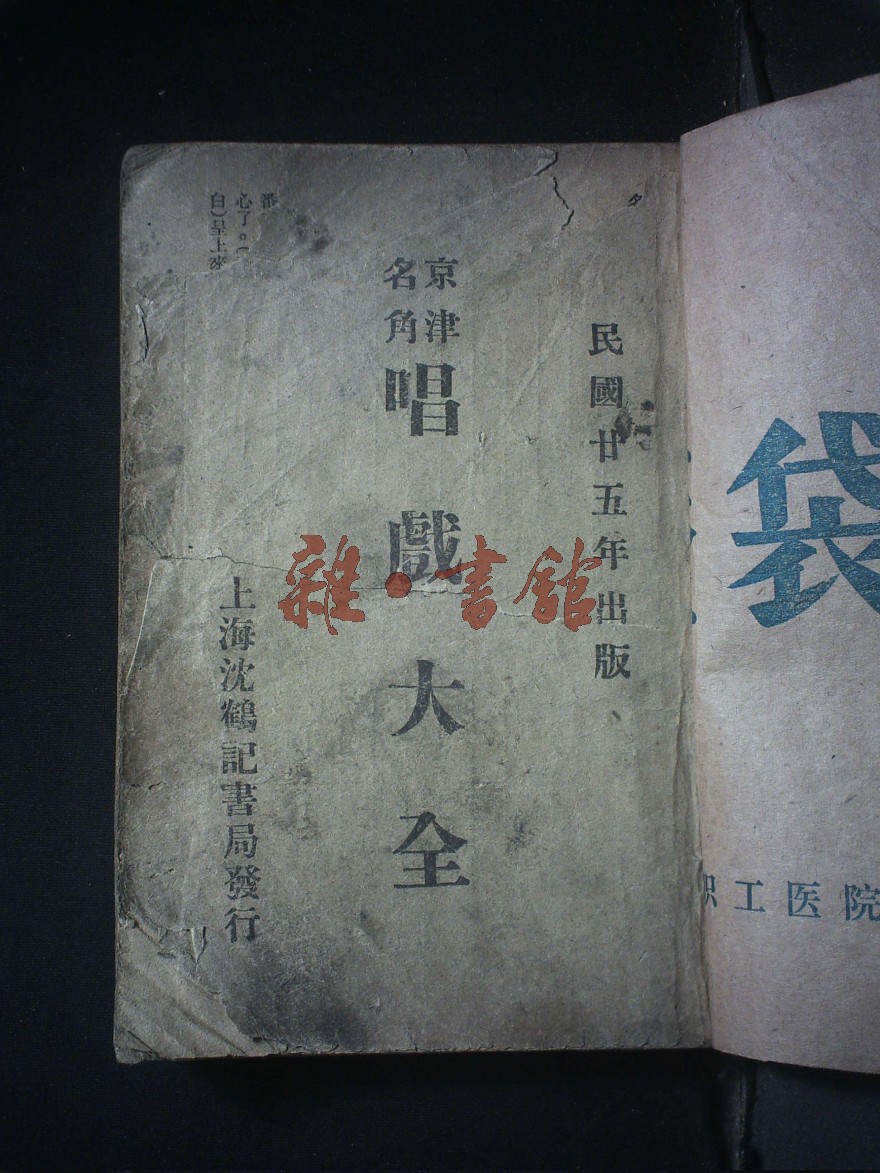 民國廿五年出版
京津
名角
唱戲大全
上海沈鶴記書局發行
心了。(
白)呈上來
雜·書館
袋
职工医院